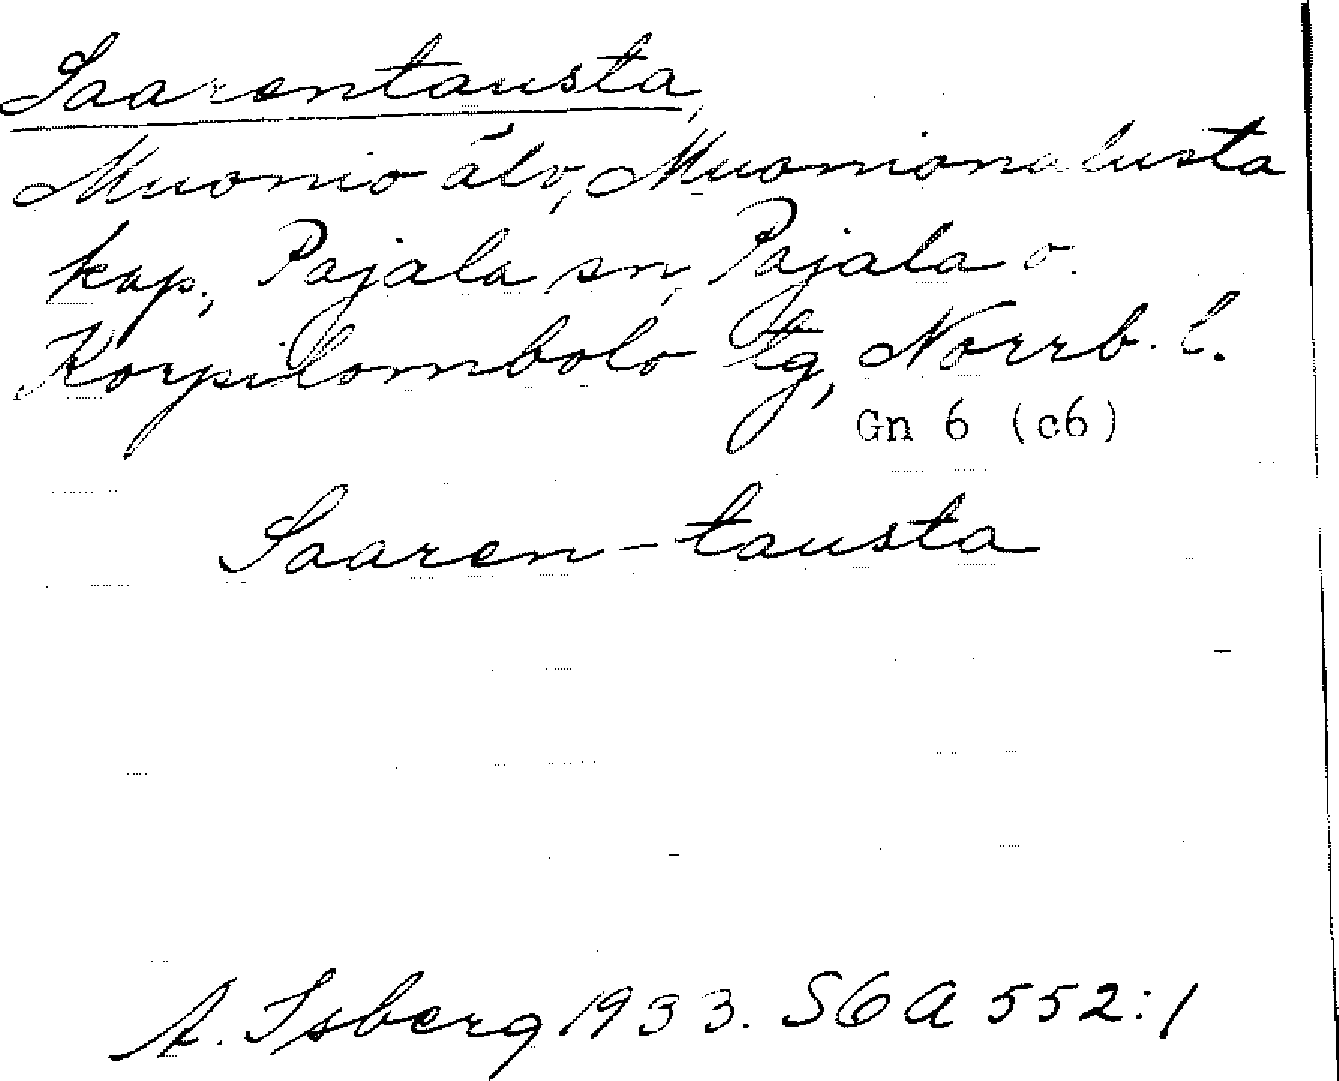 Saarentausta,
Muonio älv, Muonionalusta
kap., Pajala sn, Pajala o.
Korpilombolo tg, Norrb. l.
Gn 6 (c6)
Saaren-tausta
A. Isberg 1933. SGA 552:1